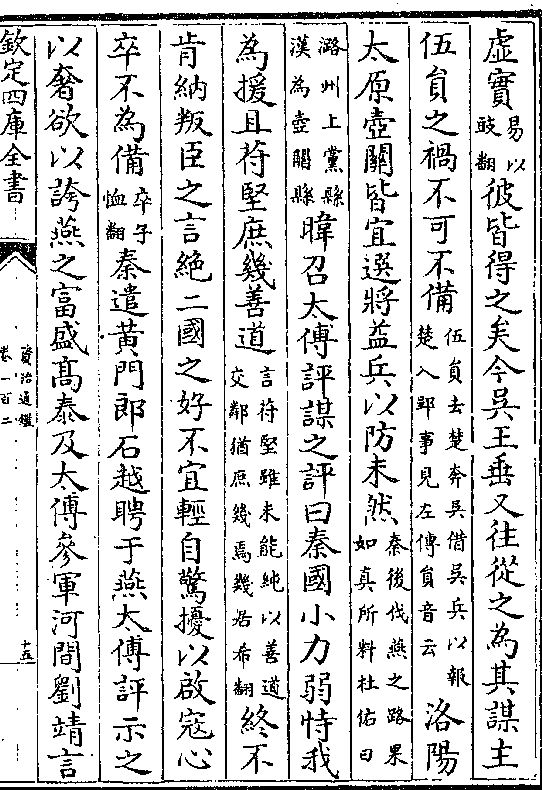 虛實易以豉翻彼皆得之矣今吳王垂又往從之為其謀主
伍員之禍不可不備伍員去楚奔吳借吳兵以報楚入郢事見左傳員音云洛陽
太原壺關皆宜選將益兵以防未然秦後伐燕之路果如真所料杜佑曰
潞州上黨縣漢為壺關縣暐召太傅評謀之評曰秦國小力弱恃我
為援且苻堅庶幾善道言苻堅雖未能純以善道交鄰猶庶幾焉幾居希翻終不
肯納叛臣之言絕二國之好不宜輕自驚擾以啟寇心
卒不為備卒子恤翻秦遣黃門郎石越聘于燕太傅評示之
以奢欲以誇燕之富盛髙泰及太傅參軍河間劉靖言
欽定四庫全書
資治通鑑
卷一百二
十五